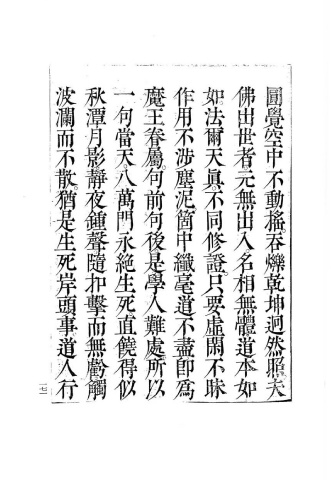 圓覺空中不動搖。吞爍乾坤迥然照。夫
佛出世者元無出入名相無體道本如
如法爾天真不同修證。只要虛閑不昧
作用不涉塵泥箇中纖毫道不盡卽爲
魔王眷屬。句前句後是學人難處所以
一句當天八萬門永絕生死直饒得似
秋潭月影靜夜鐘聲隨扣擊而無虧觸
波瀾而不散。猶是生死岸頭事道人行
十七